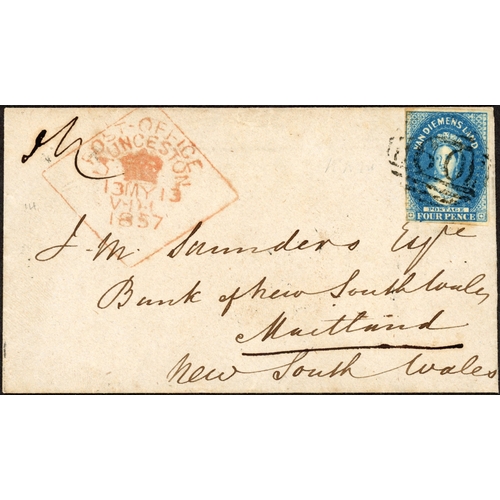 POST OFFICE
LAUNCESTON
13 MY 13
1857
VAN DIEMENS LAND
POSTAGE
FOUR PENCE
J. M. Saunders Esqre
Bank of New South Wales
Maitland
New South Wales